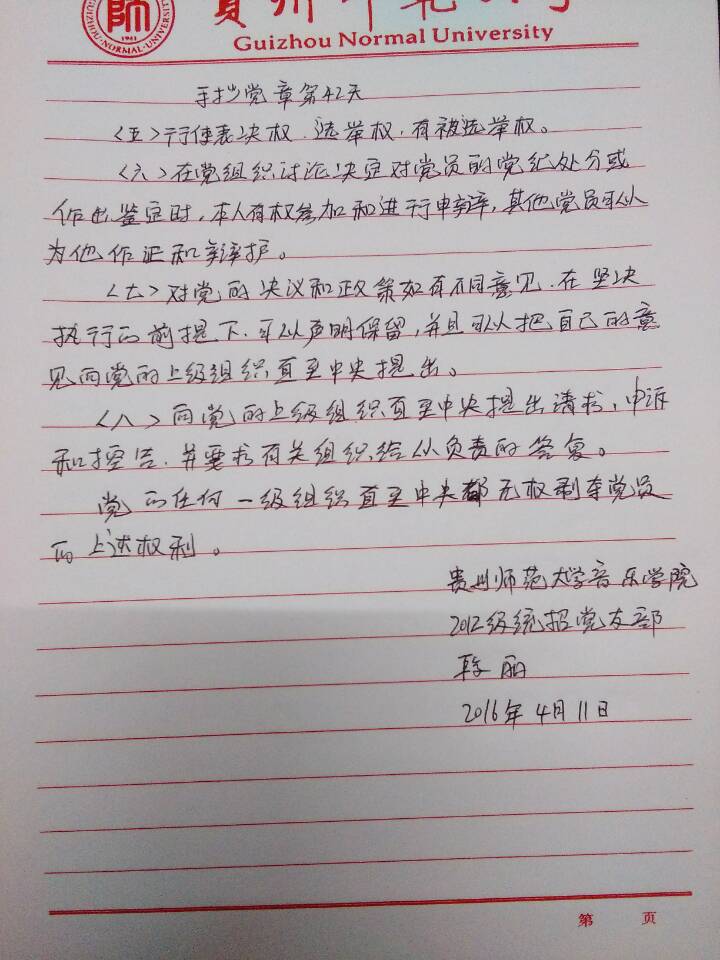 贵州师范大学
GUIZHOU NORMAL UNIVERSITY
1941
Guizhou Normal University
手抄党章第42天
<五>行使表决权、选举权,有被选举权。
<六>在党组织讨论决定对党员的党纪处分或
作出鉴定时,本人有权参加和进行申辩,其他党员可以
为他作证和辩护。
<七>对党的决议和政策如有不同意见,在坚决
执行的前提下,可以声明保留,并且可以把自己的意
见向党的上级组织直至中央提出。
<八>向党的上级组织直至中央提出请求、申诉
和控告,并要求有关组织给以负责的答复。
党的任何一级组织直至中央都无权剥夺党员
的上述权利。
贵州师范大学音乐学院
2012级统招党支部
丽
2016年4月11日
第 页